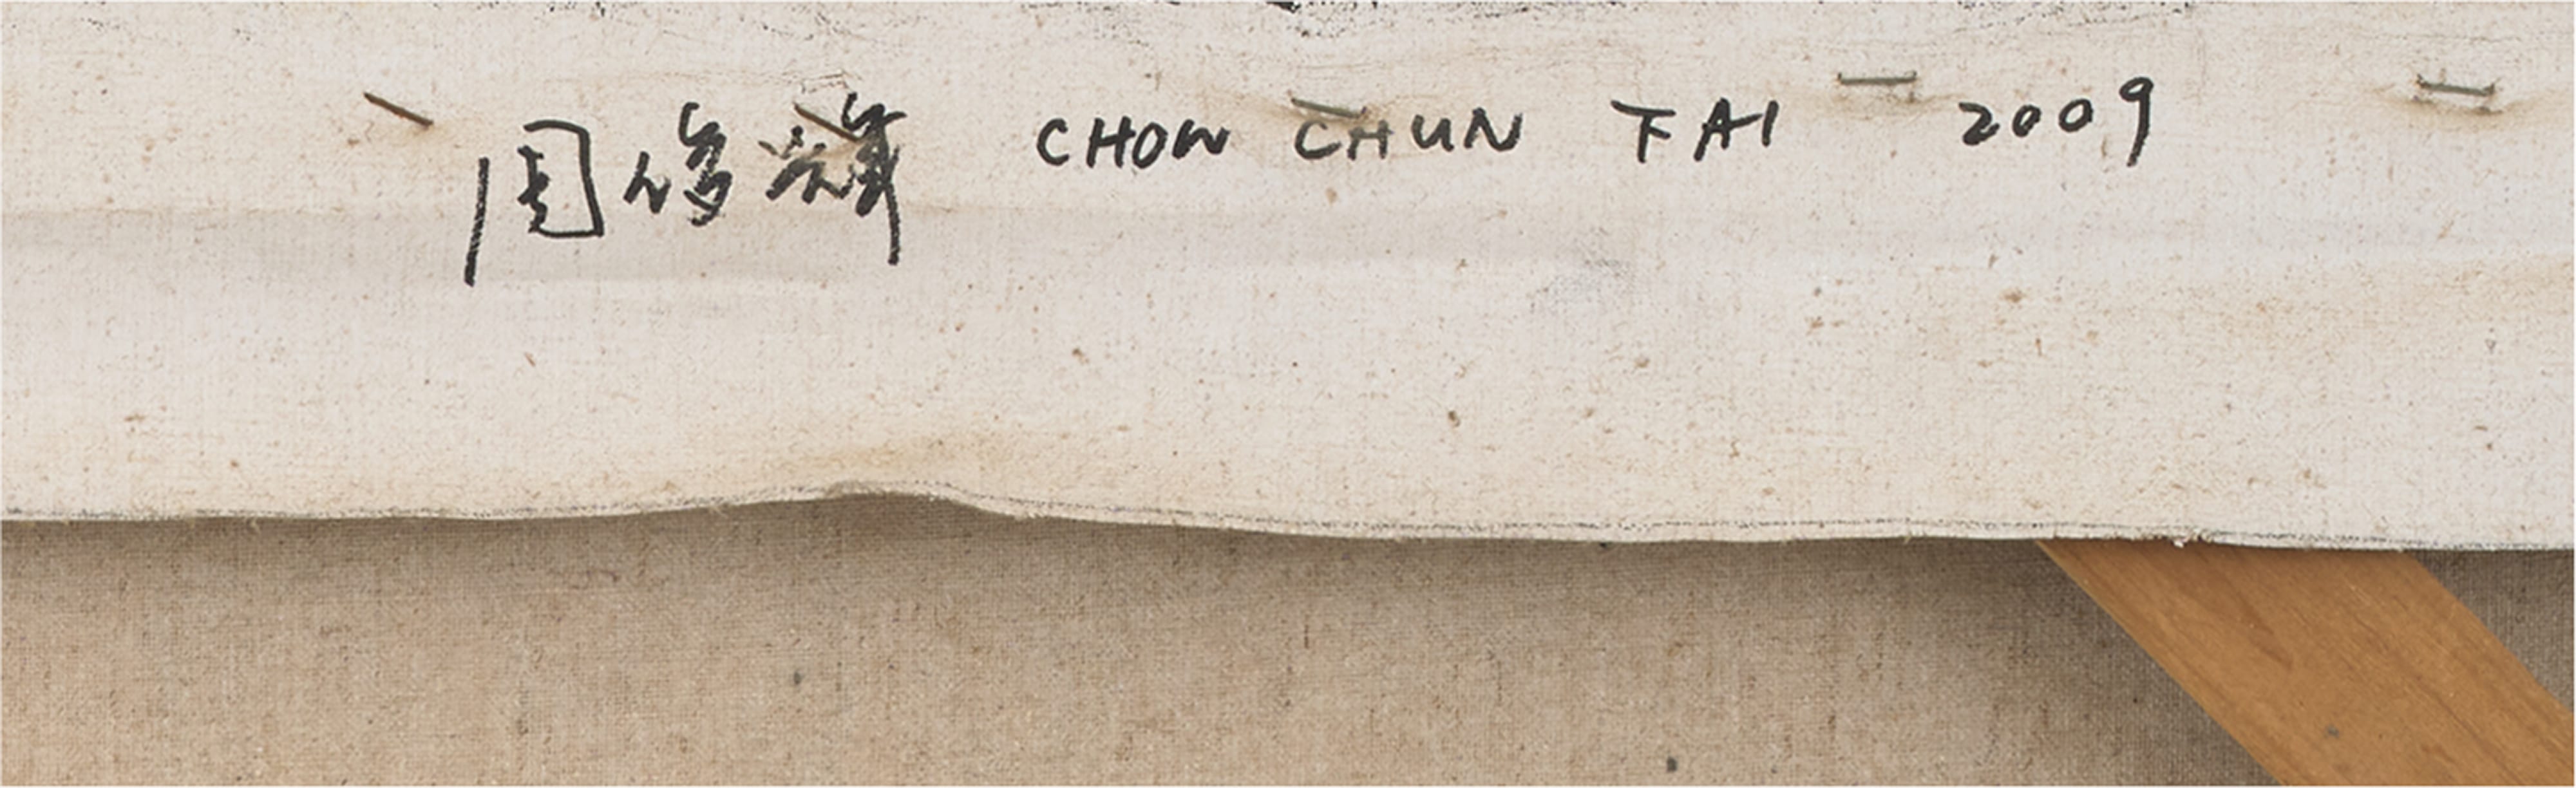 周俊輝 CHOW CHUN FAI 2009